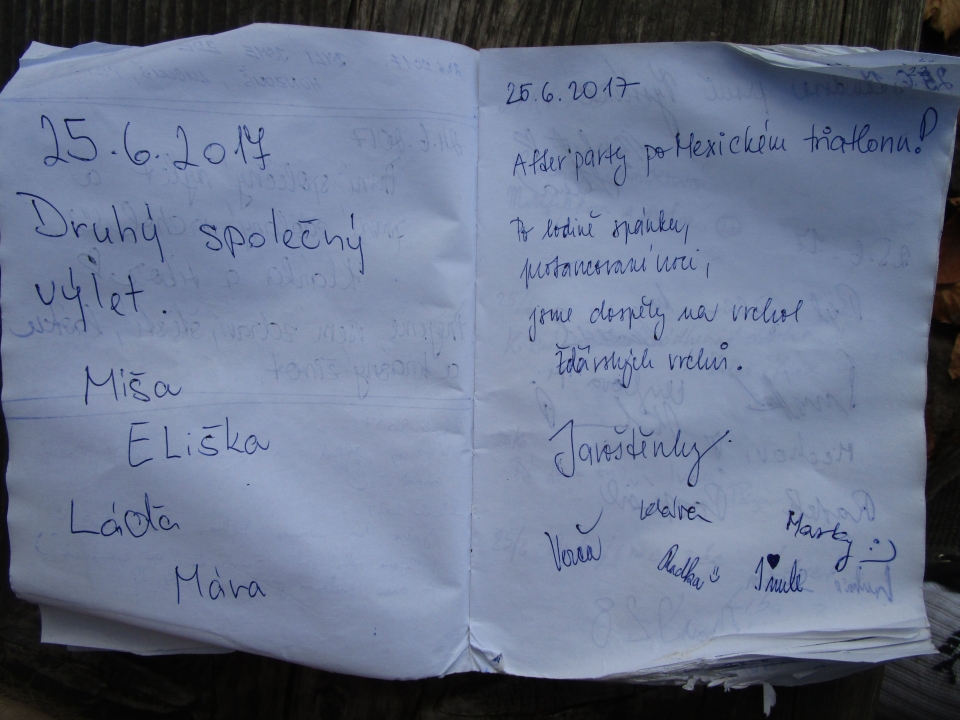 25.6.2017
Druhý společný
výlet.
Míša
ELiška
Láďa
Mára
25.6.2017
Afterparty po Mexickém triatlonu!
Po hodině spánku,
protancované noci,
jsme dospěly na vrchol
Žďárských vrchů.
Jaroštěnky
Klára
Marky :)
Verča
Radka